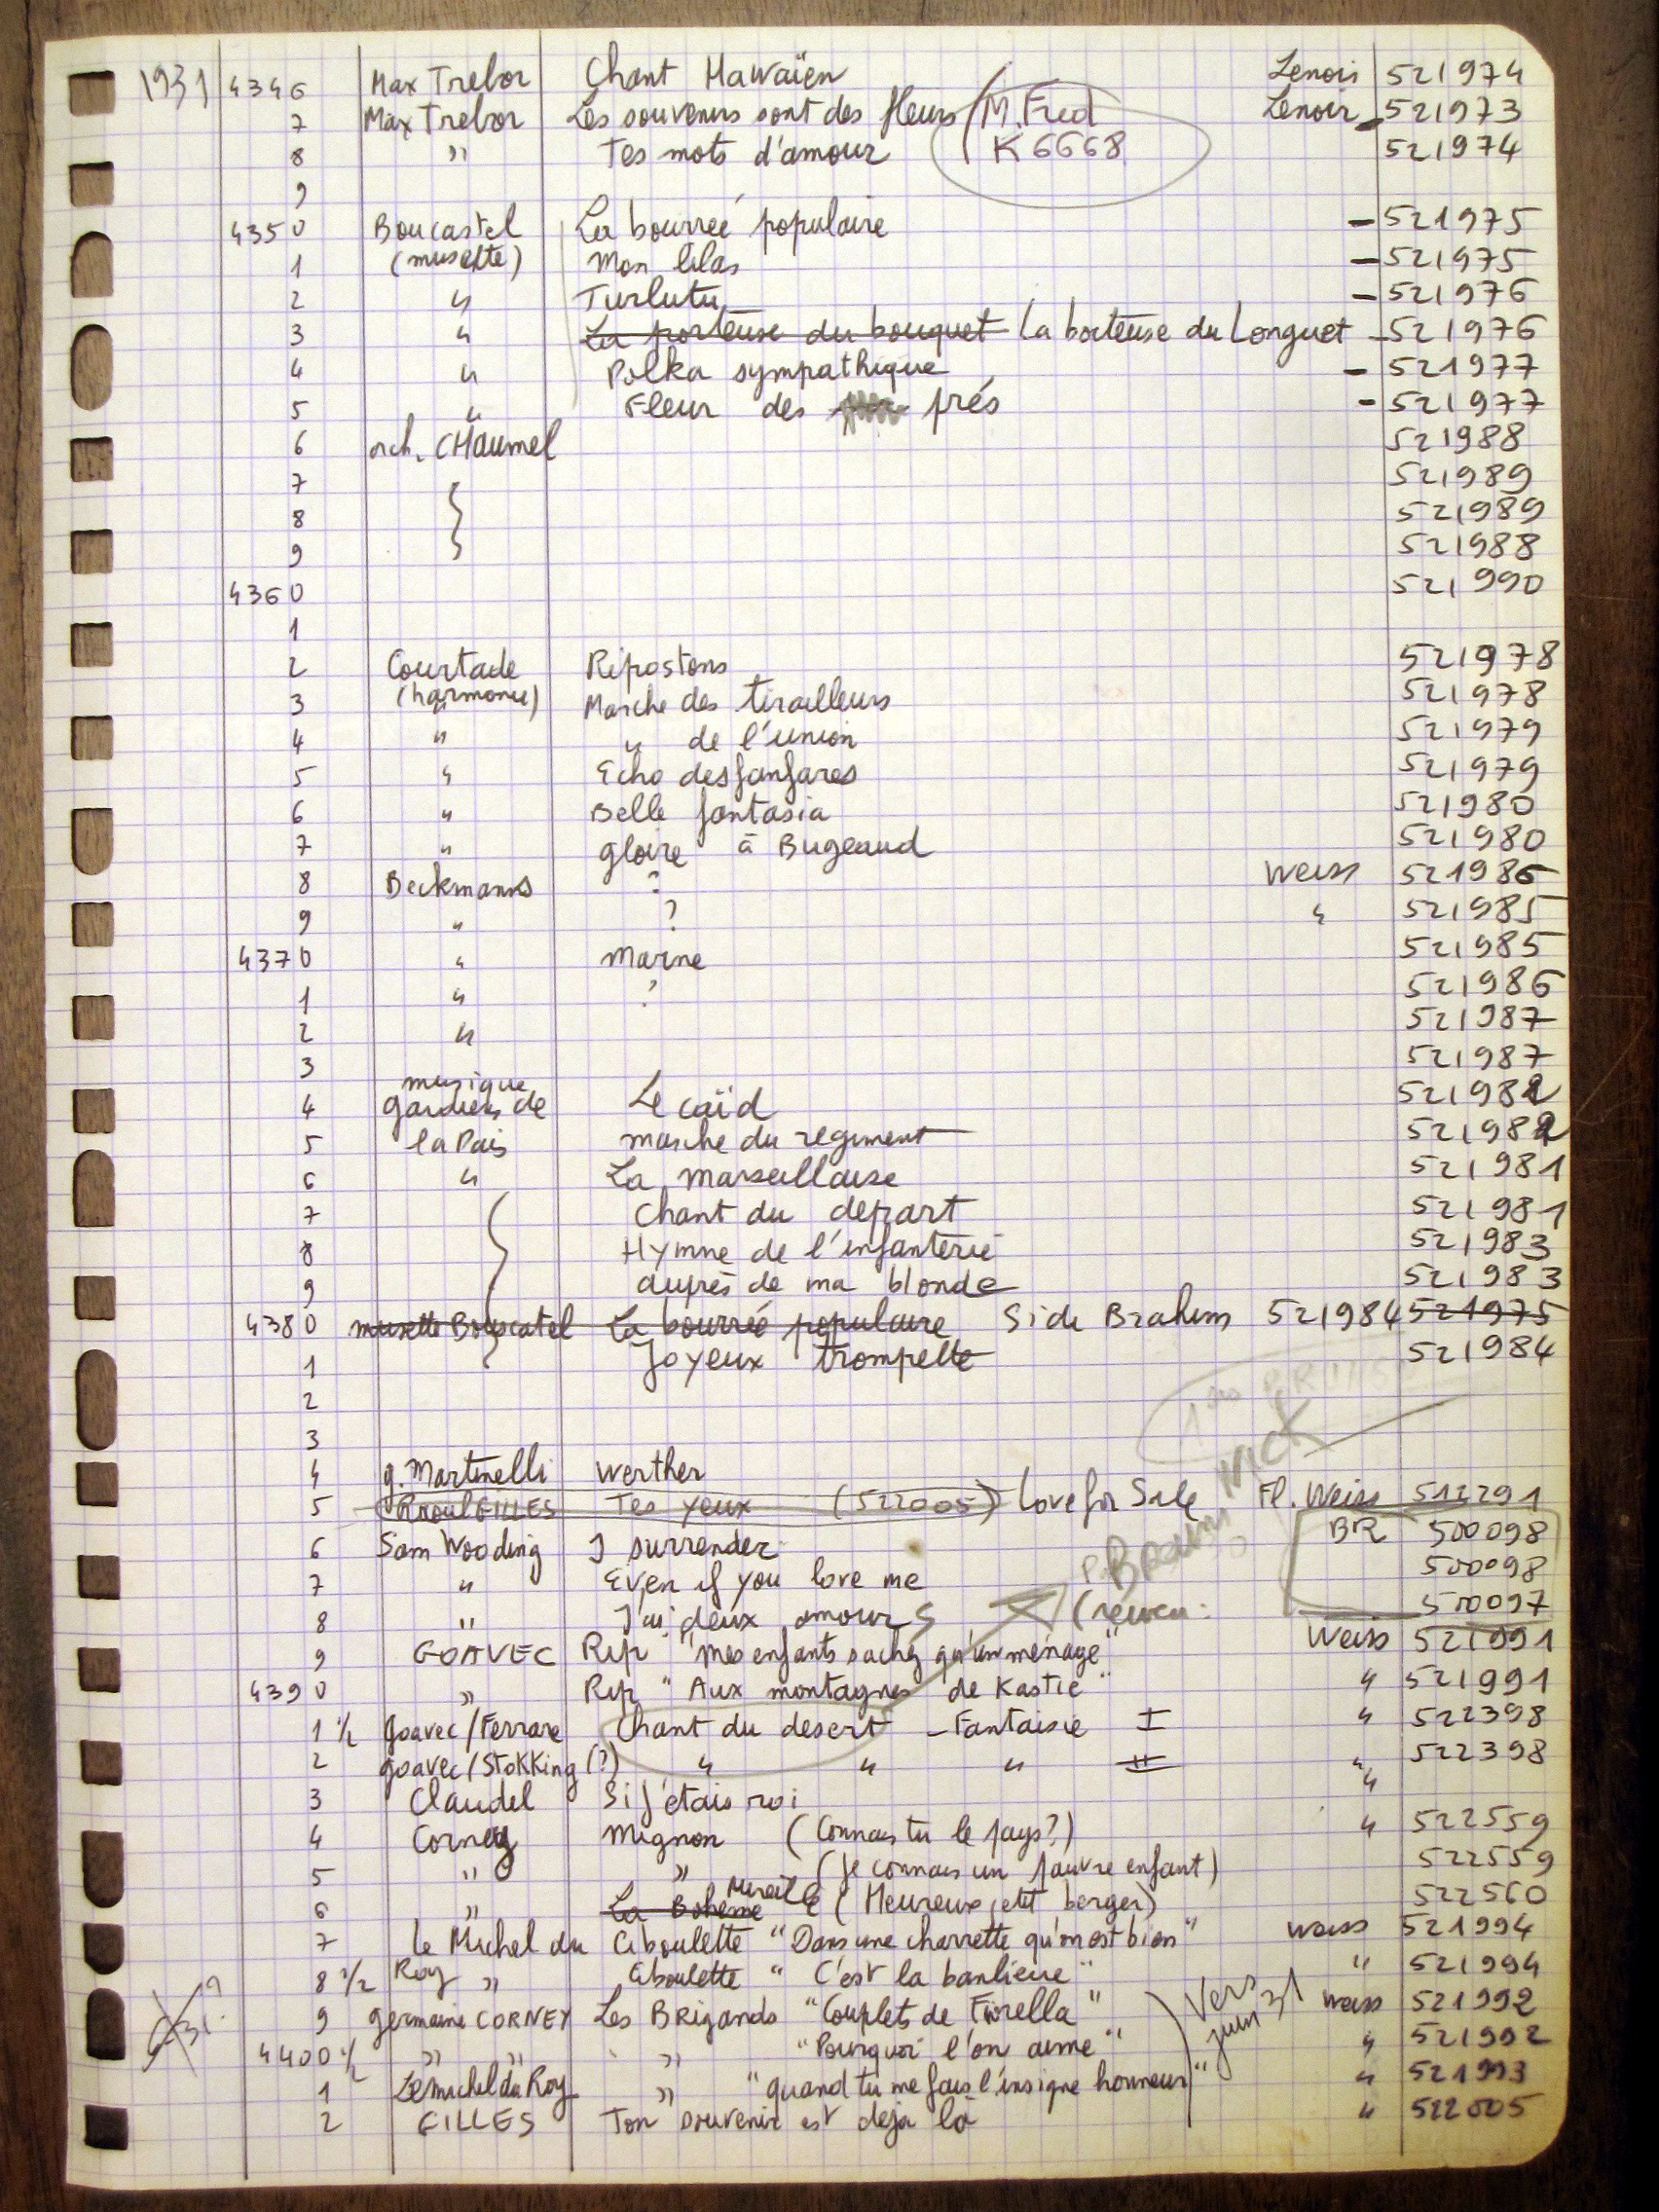 1931 4346 Max Trebor Chant Hawaïen Lenoir 521974
7 Max Trebor Les souvenirs sont des fleurs M. Fred Lenoir 521973
8 " Tes mots d'amour K 6668 521974
9
4350 Boucastel La bourreé populaire - 521975
1 (musette) Mon lilas - 521975
2 " Turlututu - 521976
3 " La porteuse du bouquet La boiteuse du Longuet - 521976
4 " Polka sympathique - 521977
5 " Fleur des prés - 521977
6 orch. CHaumel 521988
7 521989
8 521989
9 521988
4360 521990
1
2 Courtade Ripostons 521978
3 (harmonie) " Marche des tirailleurs 521978
4 " " de l'union 521979
5 " Echo des fanfares 521979
6 " Belle fantasia 521980
7 " gloire à Bugeaud 521980
8 Beckmanns ? Weiss 521986
9 " ? " 521985
4370 " Marne 521985
1 " ? 521986
2 " 521987
3 521987
musique
4 gardiens de Le caïd 521982
5 la Paix marche du regiment 521982
6 " La marseillaise 521981
7 Chant du depart 521981
8 Hymne de l'infanterie 521983
9 auprès de ma blonde 521983
4380 musette Bouscatel La bourrée populaire Sidi Brahim 521984 521975
1 Joyeux trompette 521984
2
3
4 g. Martinelli Werther
5 Raoul GILLES Tes yeux (522005) Love for Sale Fl. Weiss 512291
6 Sam Wooding I surrender BR 500098
7 " Even if you love me P. BRAUNSWICK 500098
8 " J'ai deux amours 500097
9 GOAVEC Rip "mes enfants sachez qu'un ménage" Weiss 521991
4390 " Rip "Aux montagnes de Kastie" " 521991
1 1/2 goavec/Ferrare Chant du desert - Fantaisie I " 522398
2 goavec/Stokking (?) " " " II " 522398
3 Claudel Si j'étais roi "
4 Corney Mignon (Connais tu le pays?) " 522559
5 " " (je connais un pauvre enfant) 522559
6 " La Boheme Mireille (Heureux petit berger) 522560
7 le Michel du Ciboulette "Dans une charrette qu'on est bien" Weiss 521994
8 1/2 Roy " Ciboulette "C'est la banlieue" " 521994
9 germaine CORNEY Les BRigands "Couplets de Fiorella" Vers juin 31 Weiss 521992
4400 1/2 " " " "Pourquoi l'on aime" " 521992
1 Le michel du Roy " "quand tu me fais l'insigne honneur" " 521993
2 GILLES Ton souvenir est deja là " 522005